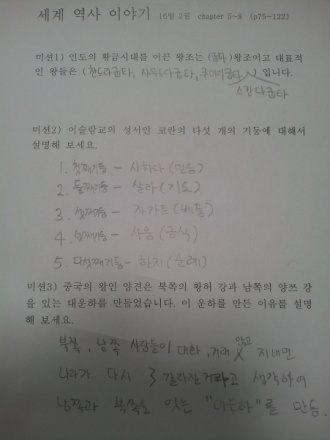 세계 역사 이야기 (6월 2주 chapter 5~8 (p75-122)
미션1) 인도의 황금시대를 이끈 왕조는 (굽타)왕조이고 대표적
인 왕들은 (찬드라굽타, 사무드라굽타, 쿠마라굽타 )입니다.
스칸다굽타
미션2) 이슬람교의 성서인 코란의 다섯 개의 기둥에 대해서
설명해 보세요.
1. 첫째기둥 - 샤하다 (믿음)
2. 둘째기둥 - 살라 (기도)
3. 셋째기둥 - 자카트 (베품)
4. 넷째기둥 - 사움 (금식)
5. 다섯째기둥 - 하지 (순례)
미션3) 중국의 왕인 양견은 북쪽의 황허 강과 남쪽의 양쯔 강
을 있는 대운하를 만들었습니다. 이 운하를 만든 이유를 설명
해 보세요.
북쪽, 남쪽 사람들이 대화, 거래 않고 지내면
나라가 다시 3 갈라질거라고 생각하여
남쪽과 북쪽을 잇는 "대운하"를 만듬.